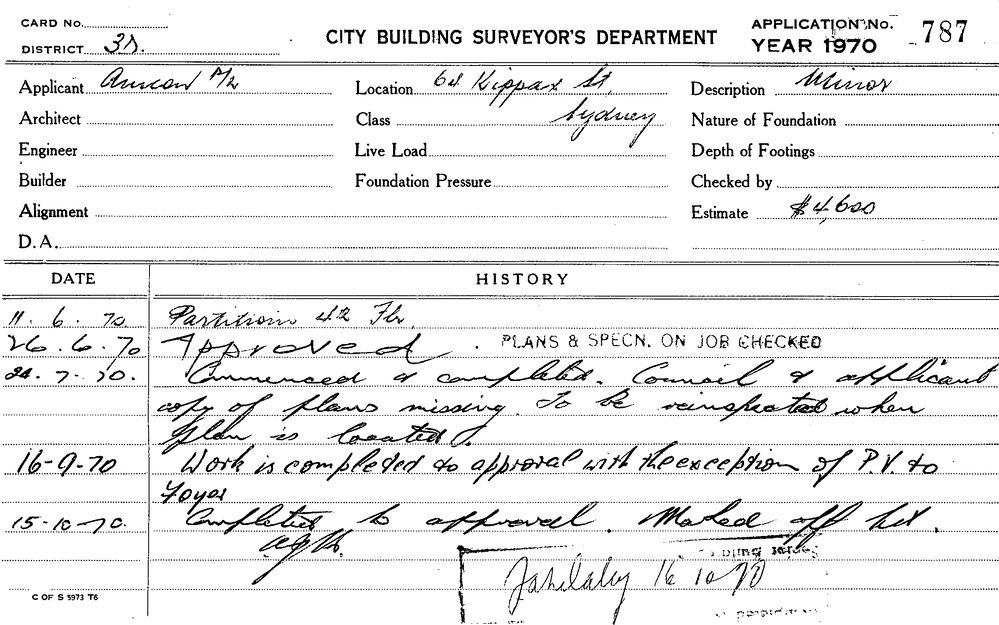 CARD No.
DISTRICT 3D.
CITY BUILDING SURVEYOR'S DEPARTMENT
APPLICATION No. 787
YEAR 1970
Applicant P/L
Location 64 Kippax St,
Sydney
Description Minor
Architect
Class
Nature of Foundation
Engineer
Live Load
Depth of Footings
Builder
Foundation Pressure
Checked by
Alignment
Estimate $4,600
D.A.
DATE
HISTORY
11. 6. 70 Partition 4&2 Flr.
26. 6. 70 Approved. PLANS & SPECN. ON JOB CHECKED
24. 7. 70. Commenced & completed. Council & applicant
copy of plans missing. To be reinspected when
plan is located.
16-9-70 Work is completed to approval with the exception of P.V. to
Foyer
15-10-70. Completed to approval. Marked off list.
16 10 70
C OF S 5973 T6